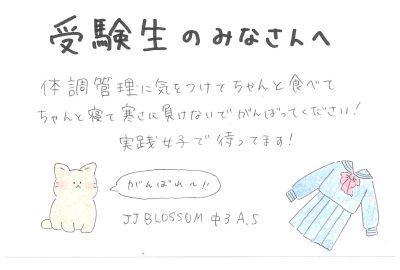 受験生のみなさんへ
体調管理に気をつけてちゃんと食べて
ちゃんと寝て寒さに負けないでがんばってください!
実践女子で待ってます!
がんばれ〜!!
JJ BLOSSOM 中3 A.S